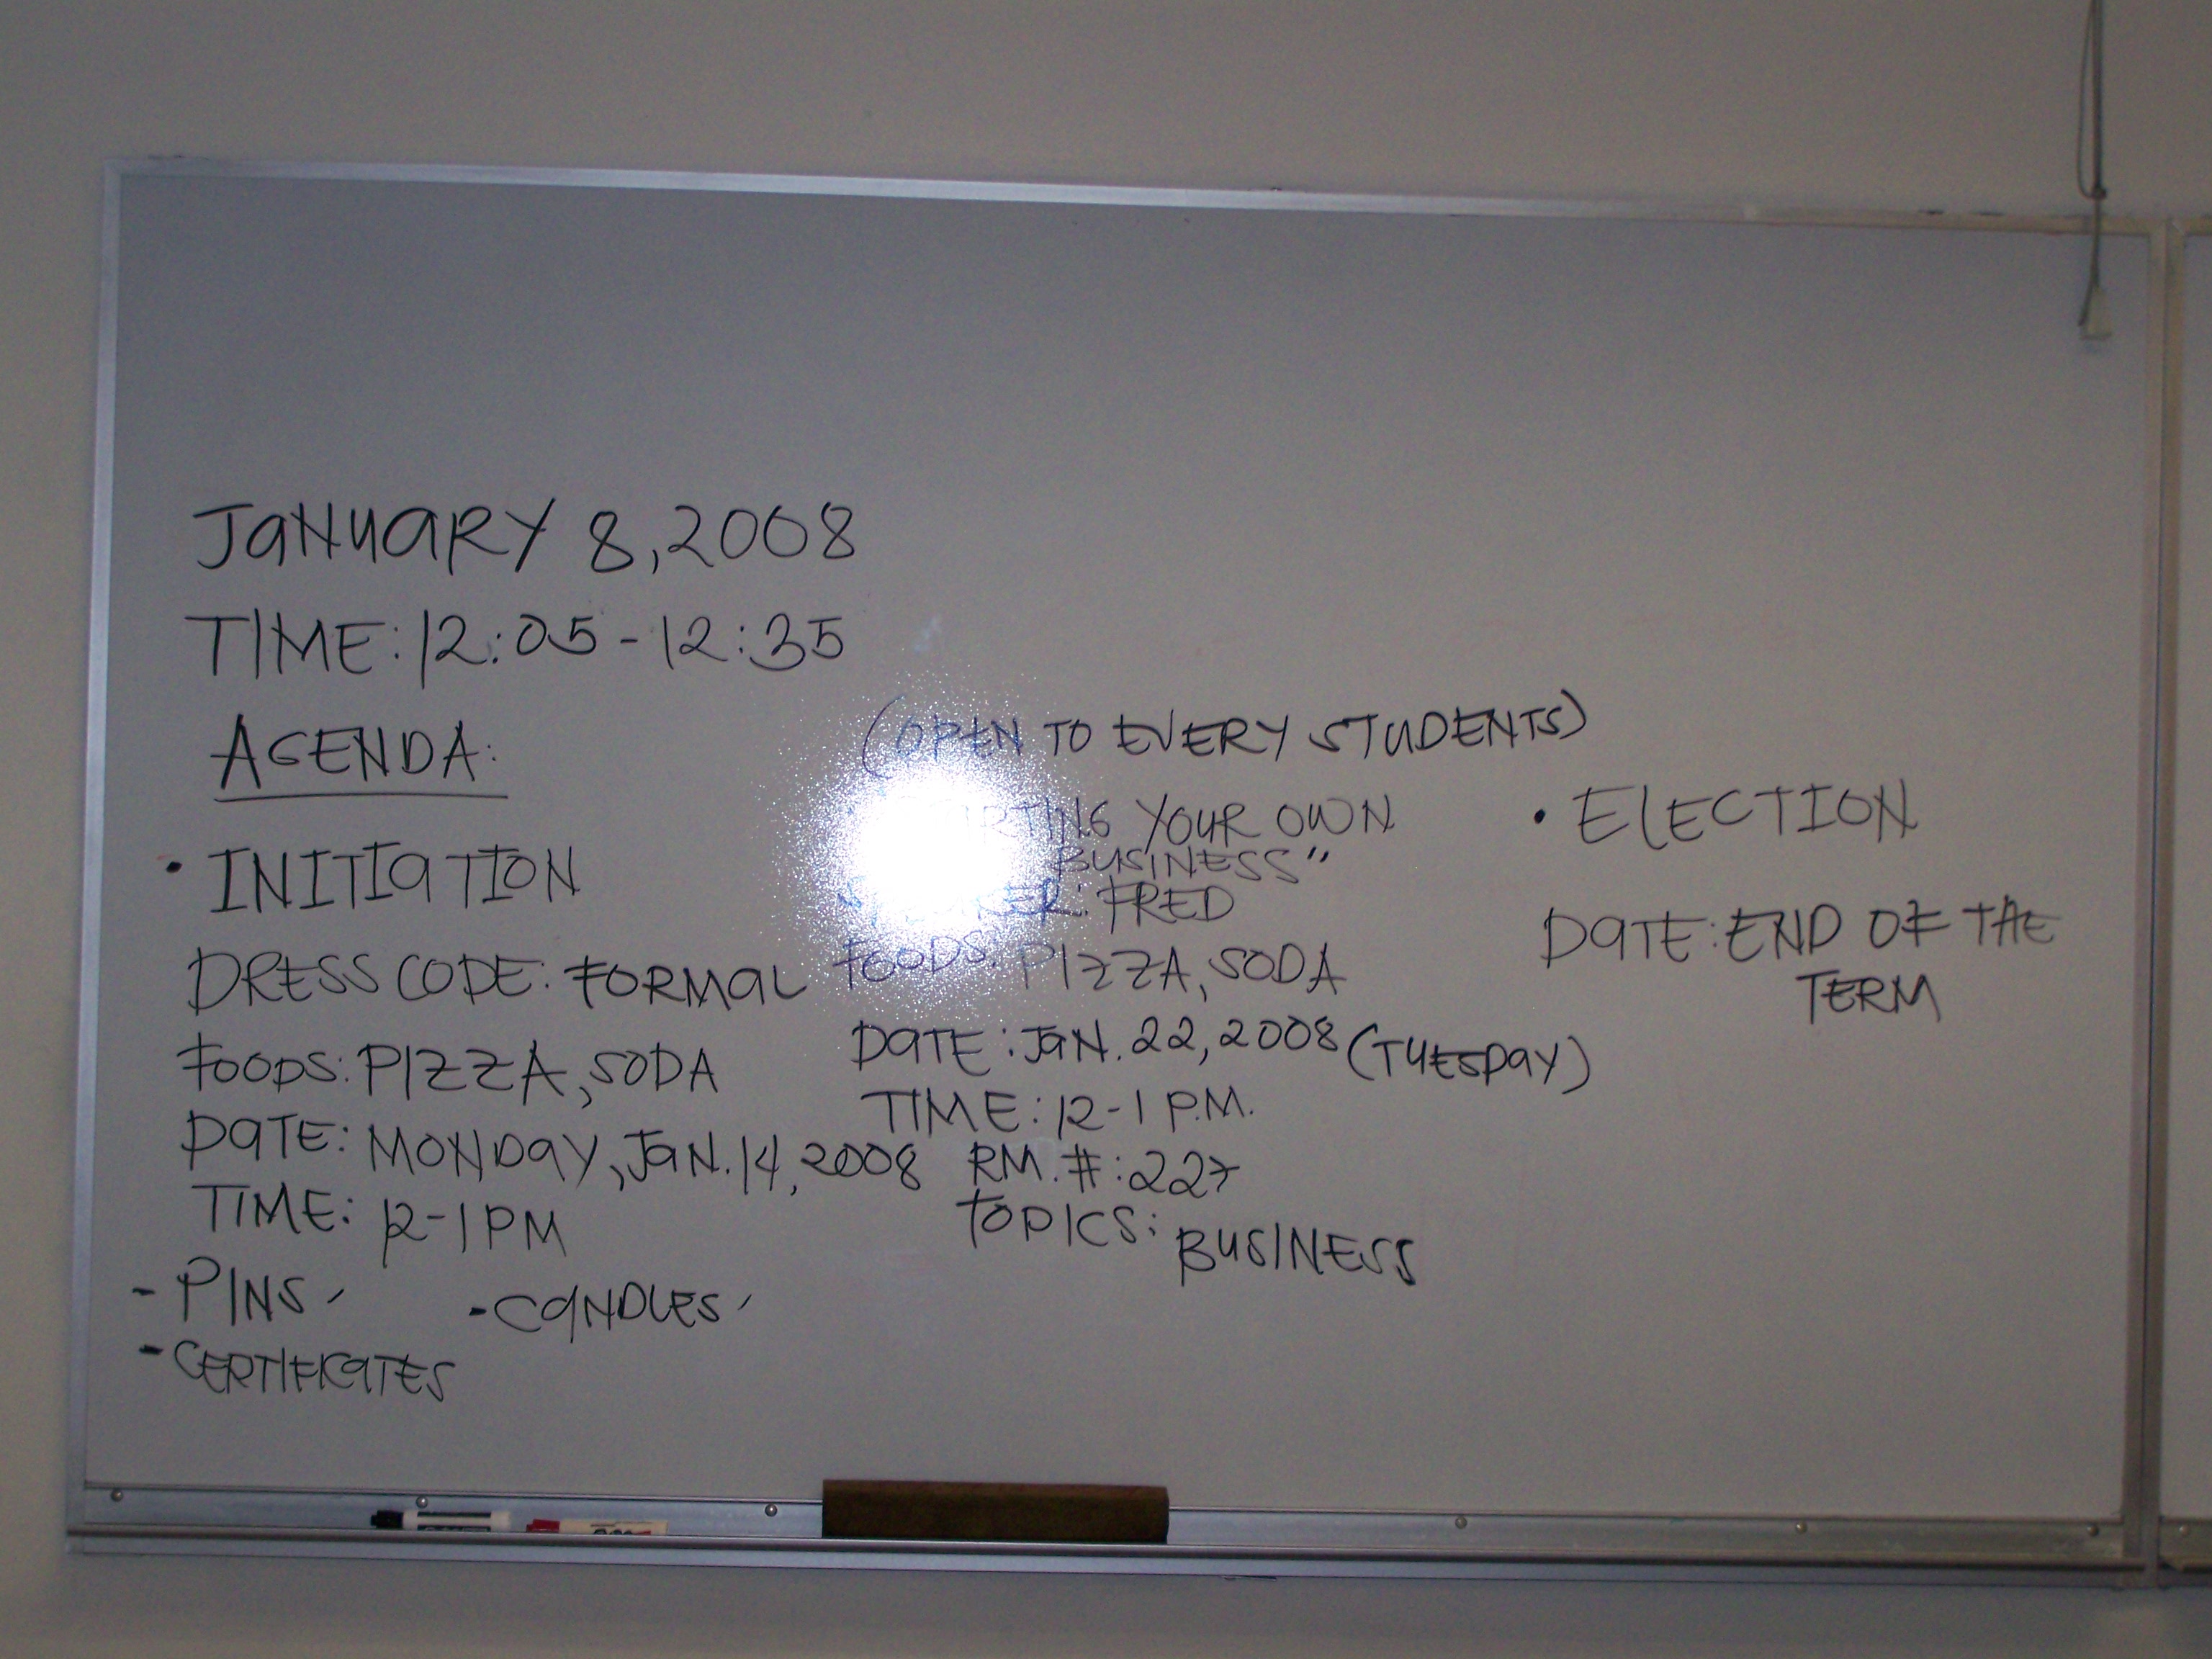 JANUARY 8, 2008
TIME: 12:05 - 12:35
AGENDA:
• INITIATION
DRESS CODE: FORMAL
FOODS: PIZZA, SODA
DATE: MONDAY, JAN. 14, 2008
TIME: 12-1 PM
- PINS
- CANDLES
- CERTIFICATES
(OPEN TO EVERY STUDENTS)
YOUR OWN
BUSINESS"
FRED
FOODS: PIZZA, SODA
DATE: JAN. 22, 2008 (TUESDAY)
TIME: 12-1 P.M.
RM. #: 227
TOPICS: BUSINESS
• ELECTION
DATE: END OF THE
TERM